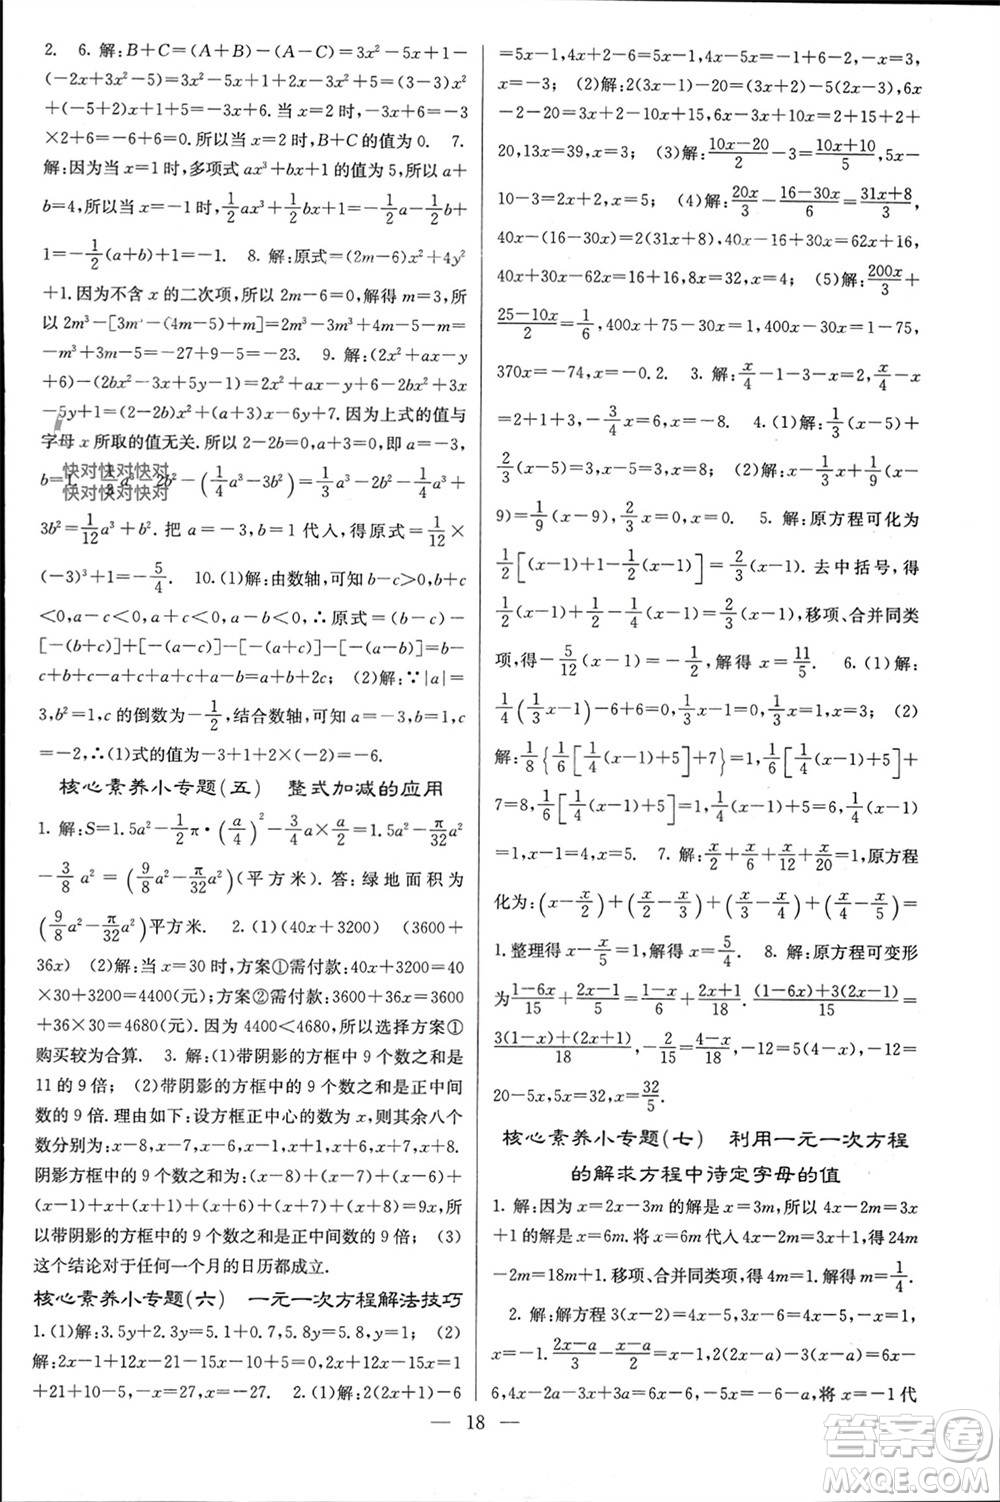 2. 6. 解:B+C=(A+B)-(A-C)=3x²-5x+1-
(-2x+3x²-5)=3x²-5x+1+2x-3x²+5=(3-3)x²
+(-5+2)x+1+5=-3x+6.当 x=2 时,-3x+6=-3
×2+6=-6+6=0.所以当 x=2 时,B+C 的值为 0. 7.
解:因为当 x=1 时,多项式 ax³+bx+1 的值为 5,所以 a+
b=4,所以当 x=-1 时,1/2ax³+1/2bx+1=-1/2a-1/2b+
1=-1/2(a+b)+1=-1. 8. 解:原式=(2m-6)x²+4y²
+1.因为不含 x 的二次项,所以 2m-6=0,解得 m=3,所
以 2m³-[3m³-(4m-5)+m]=2m³-3m³+4m-5-m=
-m³+3m-5=-27+9-5=-23. 9. 解:(2x²+ax-y
+6)-(2bx²-3x+5y-1)=2x²+ax-y+6-2bx²+3x
-5y+1=(2-2b)x²+(a+3)x-6y+7.因为上式的值与
字母 x 所取的值无关.所以 2-2b=0,a+3=0,即 a=-3,
b=1. 1/3a³-2b²-(1/4a³-3b²)=1/3a³-2b²-1/4a³+
快对快对快对
快对快对快对
3b²=1/12a³+b². 把 a=-3,b=1 代入,得原式=1/12×
(-3)³+1=-5/4. 10.(1)解:由数轴,可知 b-c>0,b+c
<0,a-c<0,a+c<0,a-b<0,∴原式=(b-c)-
[-(b+c)]+[-(a-c)]-[-(a+c)]-[-(a-b)]=b-c
+b+c-a+c+a+c+a-b=a+b+2c; (2)解:∵|a|=
3,b²=1,c 的倒数为-1/2,结合数轴,可知 a=-3,b=1,c
=-2,∴(1)式的值为-3+1+2×(-2)=-6.
核心素养小专题(五) 整式加减的应用
1. 解:S=1.5a²-1/2π·(a/4)²-3/4a×a/2=1.5a²-π/32a²
-3/8a²=(9/8a²-π/32a²)(平方米). 答:绿地面积为
(9/8a²-π/32a²)平方米. 2.(1)(40x+3200) (3600+
36x) (2)解:当 x=30 时,方案①需付款:40x+3200=40
×30+3200=4400(元);方案②需付款:3600+36x=3600
+36×30=4680(元). 因为 4400<4680,所以选择方案①
购买较为合算. 3. 解:(1)带阴影的方框中 9 个数之和是
11 的 9 倍; (2)带阴影的方框中的 9 个数之和是正中间
数的 9 倍. 理由如下:设方框正中心的数为 x,则其余八个
数分别为:x-8,x-7,x-6,x-1,x+1,x+6,x+7,x+8. 带
阴影方框中的 9 个数之和为:(x-8)+(x-7)+(x-6)+
(x-1)+x+(x+1)+(x+6)+(x+7)+(x+8)=9x,
所以带阴影的方框中的 9 个数之和是正中间数的 9 倍; (3)
这个结论对于任何一个月的日历都成立.
核心素养小专题(六) 一元一次方程解法技巧
1.(1)解:3.5y+2.3y=5.1+0.7,5.8y=5.8,y=1; (2)
解:2x-1+12x-21-15x-10-6=-10,2x+12x-15x=1
+21+10-10+6,-x=27,x=-27. 2.(1)解:2(2x-1)-6
=5x-1,4x-2-6=5x-1,4x-5x=-1+6+2,-x=7,
x=-7; (2)解:2(3x-1)-20=10x-5(2x-4),6x
-2-20=10x-10x+20,6x-10x+10x=20+2+
20,13x=39,x=3; (3)解:(10x-20)/2-3=(10x+10)/5,5x-
10-3=2x+2,3x=15,x=5; (4)解:20x/3-(16-30x)/6=(31x+8)/3,
40x-(16-30x)=2(31x+8),40x-16+30x=62x+16,
40x+30x-62x=16+16,8x=32,x=4; (5)解:200x/3+
(25-10x)/2=1/6,400x+75-30x=1,400x-30x=1-75,
370x=-74,x=-0.2. 3. 解:x/4-1-2-x=2,x/4-x
=2+1+2,-3/4x=5,x=-20/3. 4.(1)解:1/3(x-5)+
2/3(x-5)=3,x-5=3,x=8; (2)解:-1/3(x-
9)=1/9(x-9),x-9=0,x=9. 5. 解:原方程可化为
1/2[(x-1)+1-1/2(x-1)]=2/3(x-1). 去中括号,得
1/2(x-1)+1/2-1/4(x-1)=2/3(x-1),移项、合并同类
项,得-5/12(x-1)=-1/2,解得 x=11/5. 6.(1)解:
1/4(1/3x-1)-6+6=0,1/3x-1=0,1/3x=1,x=3; (2)
解:1/8{1/6[1/4(x-1)+5]+7}=1,1/6[1/4(x-1)+5]+
7=8,1/6[1/4(x-1)+5]=1,1/4(x-1)+5=6,1/4(x-1)
=1,x-1=4,x=5. 7. 解:x/2+x/6+x/12+x/20=1,原方程
化为:(x-x/2)+(x/2-x/3)+(x/3-x/4)+(x/4-x/5)=
1.整理得 x-x/5=1,4/5x=1,x=5/4. 8. 解:原方程可变形
为(1-6x)/15+(2x-1)/5=(1-x)/6+(2x+1)/18. (1-6x+3(2x-1))/15=
(3(1-x)+(2x+1))/18,-2/15=(4-x)/18,-12=5(4-x),-12=
20-5x,5x=32,x=32/5.
核心素养小专题(七) 利用一元一次方程
的解求方程中待定字母的值
1. 解:因为 x=2x-3m 的解是 x=3m,所以 4x-2m=3x
+1 的解是 x=6m. 将 x=6m 代入 4x-2m=3x+1,得 24m
-2m=18m+1. 移项、合并同类项,得 4m=1.解得 m=1/4.
2. 解:解方程 3(x-2)=4x-5,3x-6=4x-5,-x=1,
x=-1. (2x-a)/3-(x-a)/2=x-1,2(2x-a)-3(x-a)=6x-
6,4x-2a-3x+3a=6x-6,-5x=-a-6,将 x=-1 代
18
答案圈
MXQE.COM